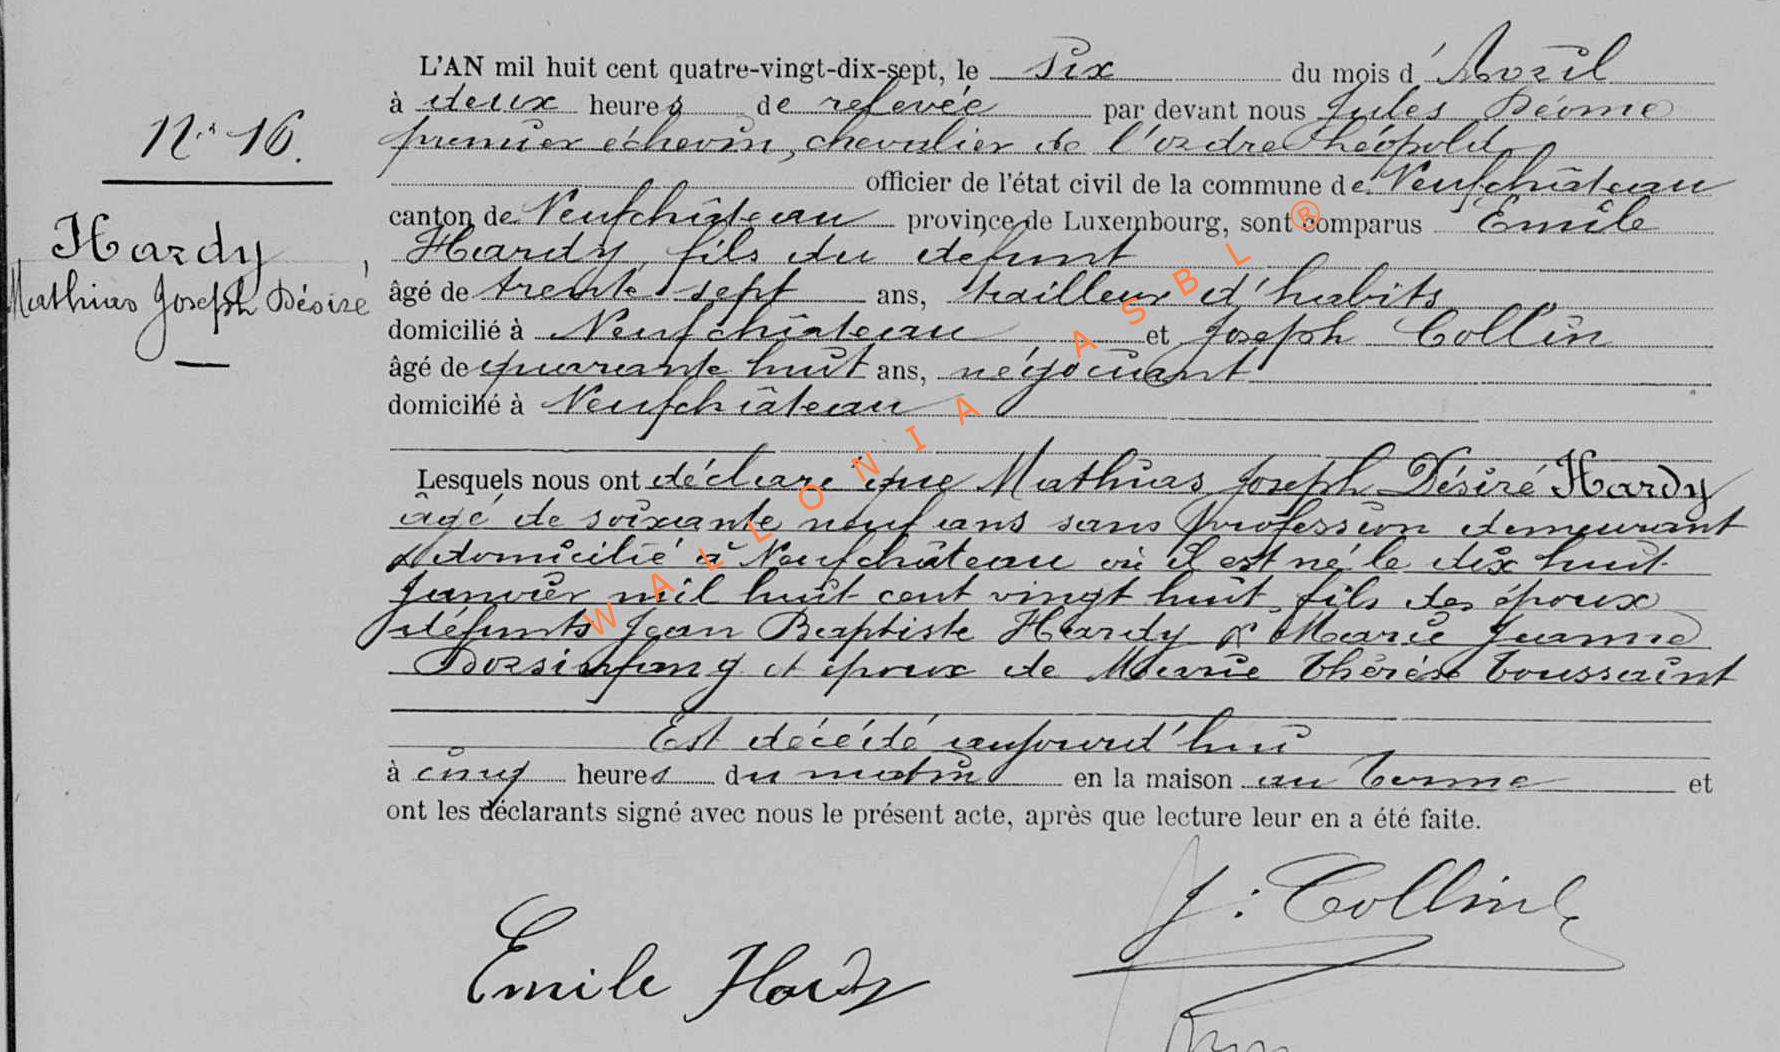 N° 16.
Hardy,
Mathias Joseph Désiré
L'AN mil huit cent quatre-vingt-dix-sept, le six du mois d'Avril
à deux heures de relevée par devant nous Jules
premier échevin, chevalier de l'ordre Léopold
officier de l'état civil de la commune de Neufchâteau
canton de Neufchâteau province de Luxembourg, sont comparus Emile
Hardy, fils du défunt
âgé de trente sept ans, tailleur d'habits
domicilié à Neufchâteau et Joseph Collin
âgé de quarante huit ans, négociant
domicilié à Neufchâteau
Lesquels nous ont déclaré que Mathias Joseph Désiré Hardy
âgé de soixante neuf ans sans profession demeurant
& domicilié à Neufchâteau où il est né le dix huit
Janvier mil huit cent vingt huit, fils des époux
défunts Jean Baptiste Hardy & Marie Jeanne
et époux de Marie Thérèse Toussaint
Est décédé aujourd'hui
à cinq heures du matin en la maison au Terme et
ont les déclarants signé avec nous le présent acte, après que lecture leur en a été faite.
J. Collin
Emile Hardy
WALLONIA ASBL ®